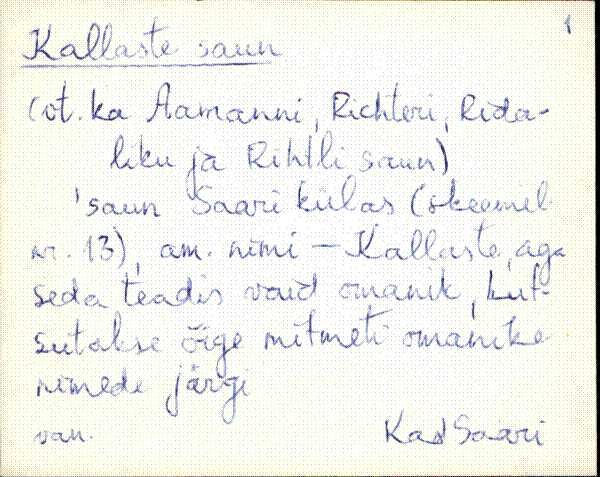 1
Kallaste saun
(vt. ka Aamanni, Richteri, Rida-
liku ja Rihtli saun)
'saun Saari külas (skeemil
nr. 13), am. nimi – Kallaste, aga
seda teadis vaid omanik, kut-
sutakse õige mitmeti omanike
nimede järgi
van. Kad Saari